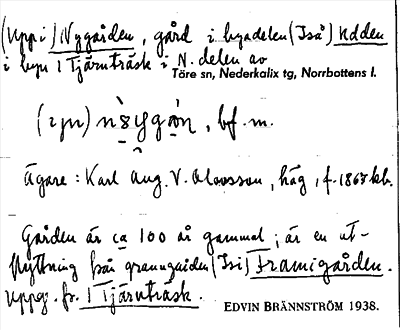 (Uppi) Nygården, gård i byadelen (Iså) Udden
i byn 1 Tjärnträsk i N. delen av
Töre sn, Nederkalix tg, Norrbottens l.
bf. m.
Ägare: Karl Aug. V. Olovsson, häg, f. 1865 kb.
Gården är ca 100 år gammal; är en ut-
flyttning från granngården (Isi) Framigården.
Uppg. fr. 1 Tjärnträsk.
EDVIN BRÄNNSTRÖM 1938.